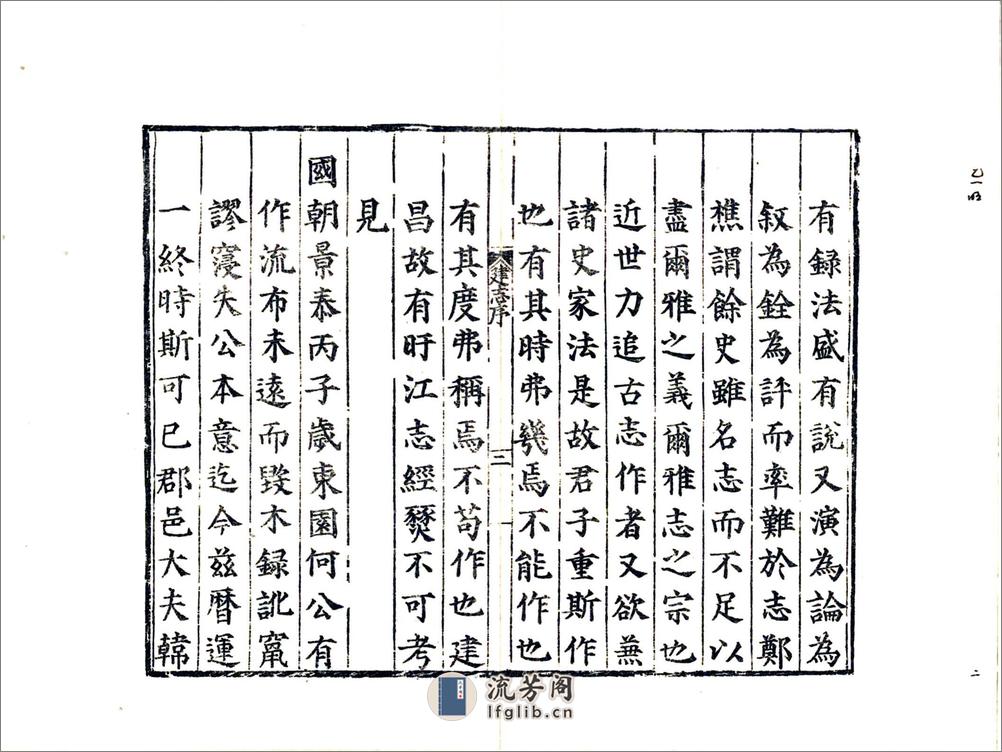 有録法盛有說又演為論為
叙為銓為評而率難於志鄭
樵謂餘史雖名志而不足以
盡爾雅之義爾雅志之宗也
近世力追古志作者又欲兼
諸史家法是故君子重斯作
也有其時弗幾焉不能作也
建志序
三
有其度弗稱焉不苟作也建
昌故有盱江志經燹不可考
見
國朝景泰丙子歲東園何公有
作流布未遠而毀木録訛竄
謬寖失公本意迄今兹曆運
一終時斯可已郡邑大夫韓
流芳阁
lfglib.cn